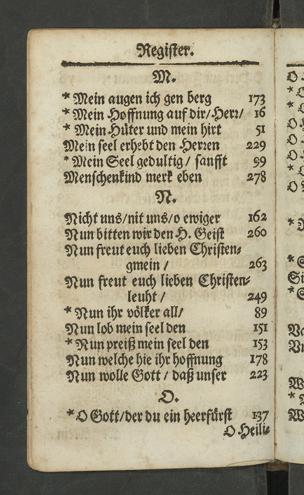 Register.
M.
* Mein augen ich gen berg 173
* Mein Hoffnung auf dir/Herr/ 16
* Mein Hüter und mein hirt 51
Mein seel erhebt den Herren 229
* Mein Seel gedultig / sanfft 99
Menschenkind merk eben 278
N.
Nicht uns/nit uns/o ewiger 162
Nun bitten wir den H. Geist 260
Nun freut euch lieben Christen-
gmein / 263
Nun freut euch lieben Christen-
leuht / 249
* Nun ihr völker all/ 89
Nun lob mein seel den 151
* Nun preiß mein seel den 153
Nun welche hie ihr hoffnung 178
Nun wolle Gott / daß unser 223
O.
* O Gott/der du ein heerfürst 137
O Heili-